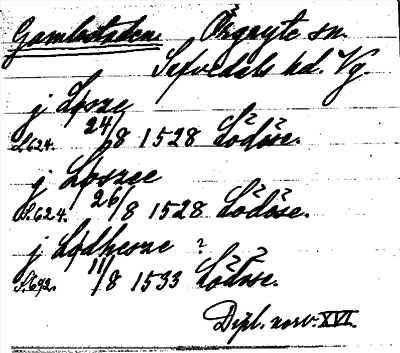 Gamlestaden. Örgryte sn.
Sefvedals hd. Vg.
j Løsze
S. 624. 24/8 1528 Lödöse.
j Løszee
S. 624. 26/8 1528 Lödöse.
j Lødhesze ?
S. 692. 11/8 1533 Lödöse.
Dipl. norv. XVI.